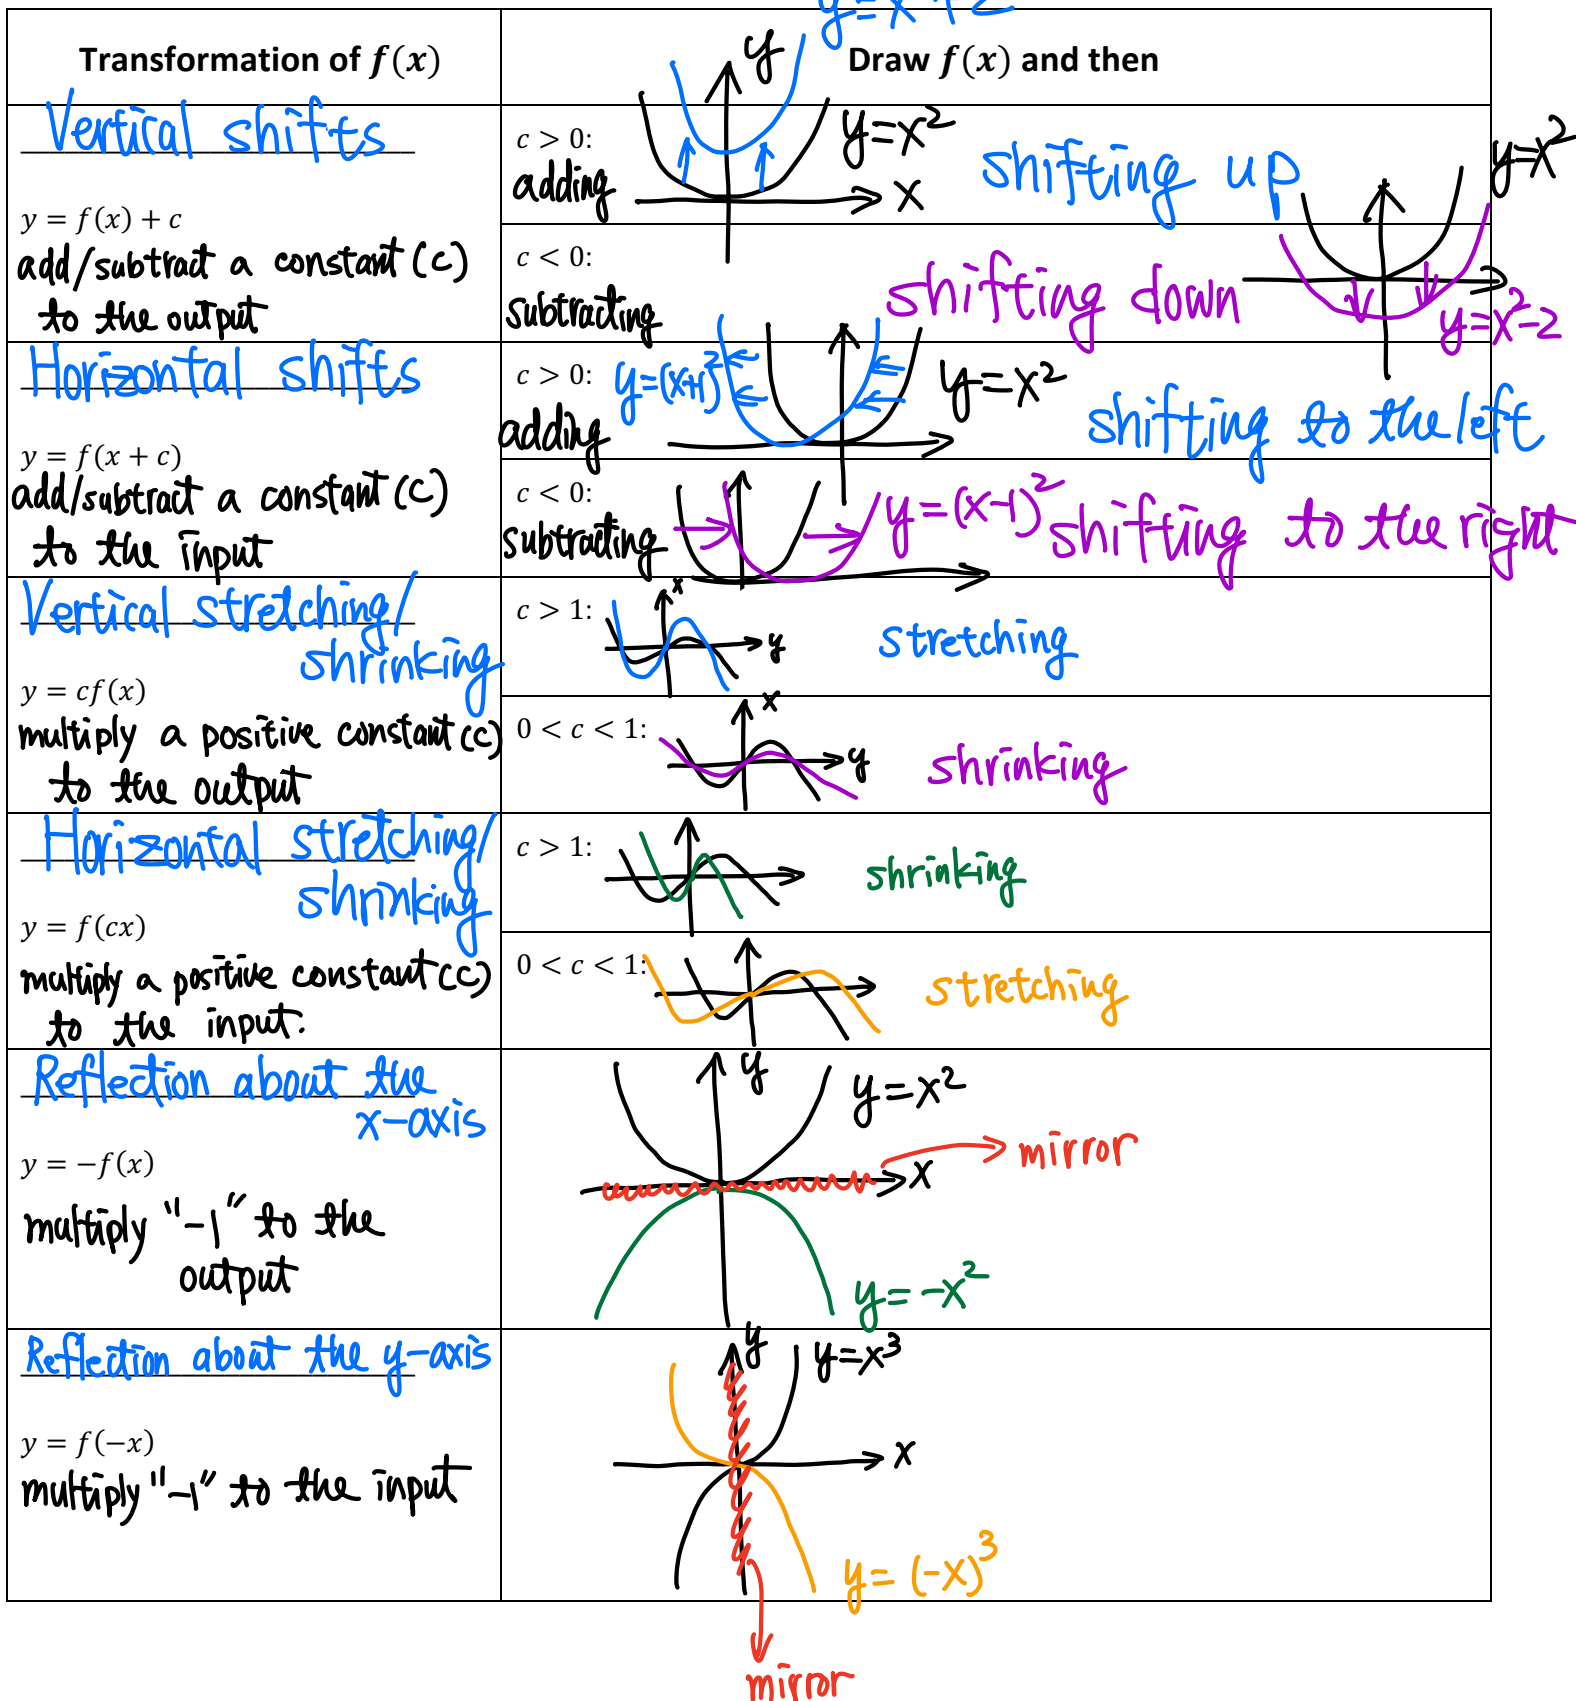 y=x²+2
Transformation of f(x)
Draw f(x) and then
Vertical shifts
y = f(x) + c
add/subtract a constant (c)
to the output
c > 0:
adding
y
y=x²
x
shifting up
c < 0:
subtracting
shifting down
y=x²
y=x²-2
Horizontal shifts
y = f(x + c)
add/subtract a constant (c)
to the input
c > 0:
adding
y=(x+1)²
y=x²
shifting to the left
c < 0:
subtracting
y=(x-1)²
shifting to the right
Vertical stretching/
shrinking
y = cf(x)
multiply a positive constant (c)
to the output
c > 1:
x
y
stretching
0 < c < 1:
x
y
shrinking
Horizontal stretching/
shrinking
y = f(cx)
multiply a positive constant (c)
to the input.
c > 1:
shrinking
0 < c < 1:
stretching
Reflection about the
x-axis
y = −f(x)
multiply "-1" to the
output
y
y=x²
mirror
x
y=-x²
Reflection about the y-axis
y = f(−x)
multiply "-1" to the input
y
y=x³
x
y=(-x)³
mirror